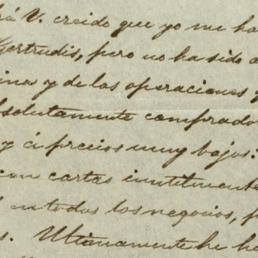 rá V. creido que yo me ha
Gertrudis, pero no ha sido a
ina y de las operaciones y
bsolutamente comprado
y á precios muy bajos.
con cartas inutilmente
en todos los negocios, p
s. Ultimamente he ha